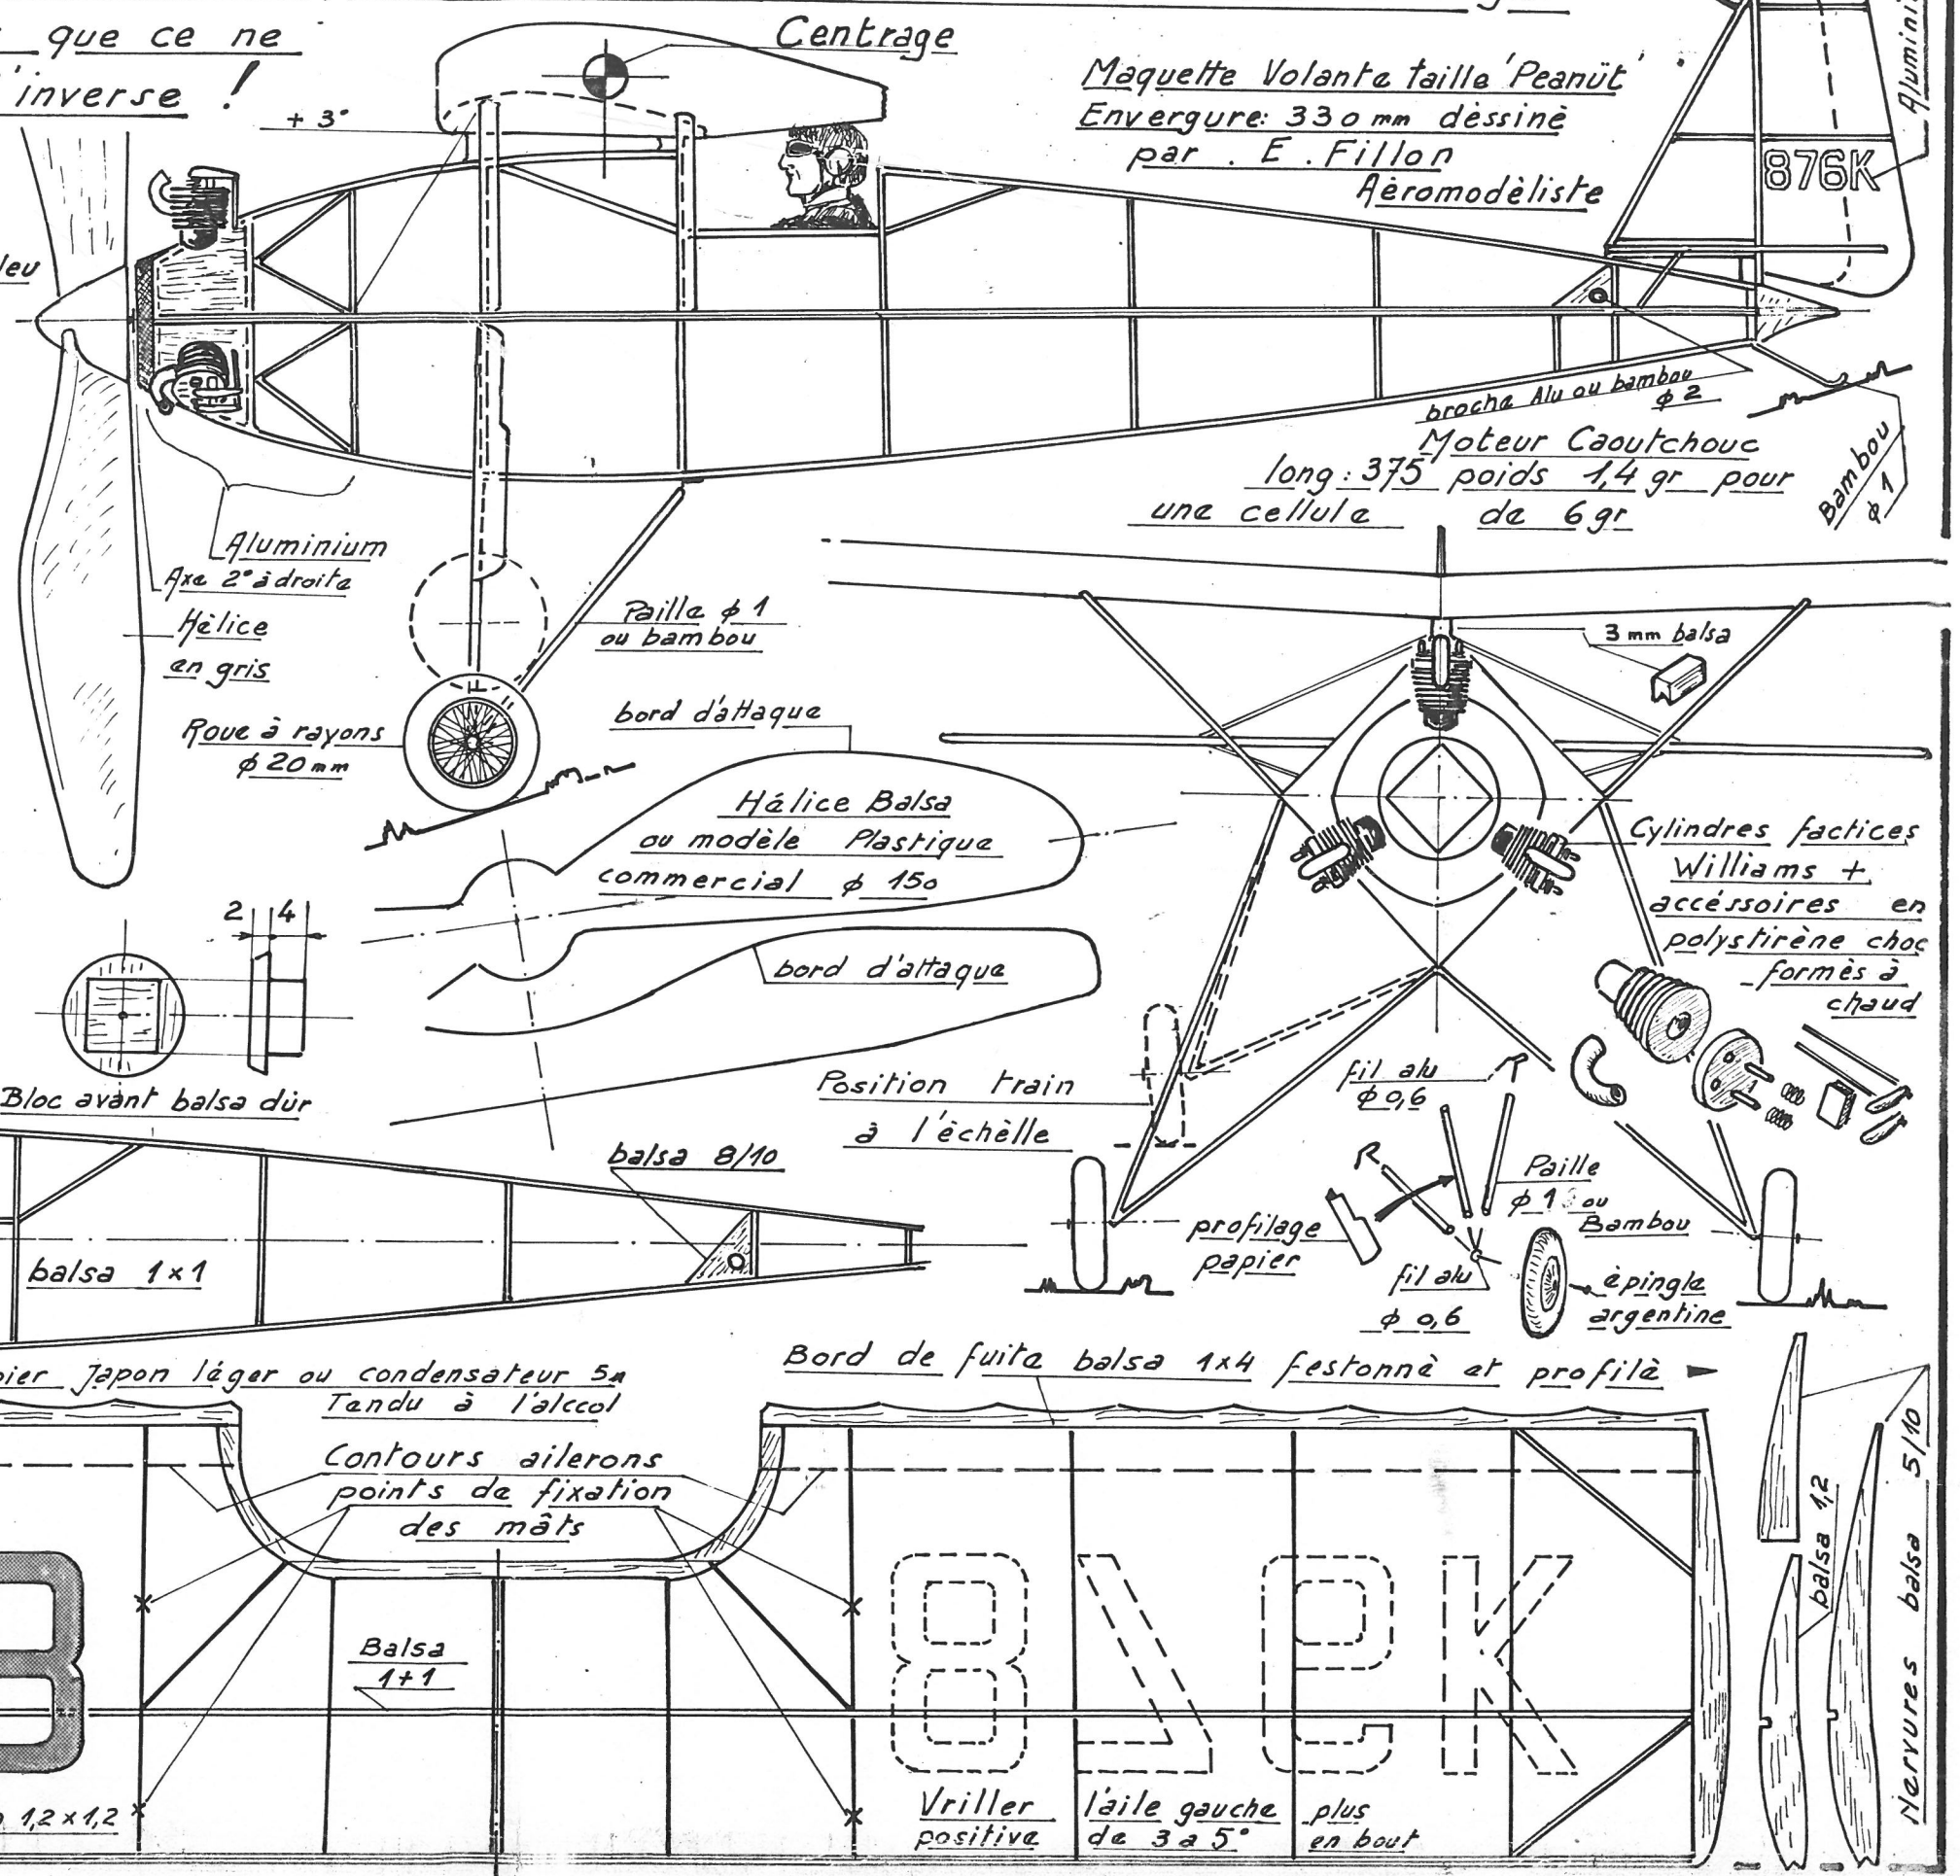 que ce ne
'inverse !
+ 3°
Centrage
Maquette Volante taille 'Peanüt'
Envergure: 330 mm dèssinè
par . E . Fillon
Aèromodèliste
876K
leu
brocha Alu ou bambou
ϕ 2
Moteur Caoutchouc
long : 375 poids 1,4 gr pour
une cellule de 6 gr
Bambou
ϕ 1
Aluminium
Axe 2° à droite
Hèlice
en gris
Paille ϕ 1
ou bambou
Roue à rayons
ϕ 20 mm
bord d'attaque
Hèlice Balsa
ou modèle Plastique
commercial ϕ 150
bord d'attaque
3 mm balsa
Cylindres factices
Williams +
accéssoires en
polystirène choc
formès à
chaud
2 4
Bloc avant balsa dùr
Position train
à l'èchèlle
fil alu
ϕ 0,6
R
Paille
ϕ 1 ou
Bambou
profilage
papier
fil alu
ϕ 0,6
èpingle
argentine
balsa 8/10
balsa 1x1
pier Japon léger ou condensateur 5µ
Tendu à l'alcool
Bord de fuite balsa 1x4 festonnè et profilè
Contours ailerons
points de fixation
des mâts
Balsa
1+1
876K
1,2 x 1,2
Vriller l'aile gauche plus
positive de 3 a 5° en bout
balsa 1,2
Nervures balsa 5/10